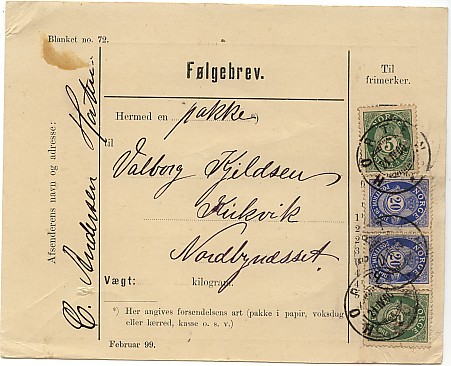 Blanket no. 72.
Følgebrev.
Til
frimerker.
Hermed en pakke *)
til
Valborg Kjeldsen
Kirkvik
Nordbynesset
Vægt: kilogram.
*) Her angives forsendelsens art (pakke i papir, voksdug
eller lærred, kasse o. s. v.)
Februar 99.
Afsenderens navn og adresse:
C. Andersen
NORGE
5
NORGE
20
NORGE
20
NORGE